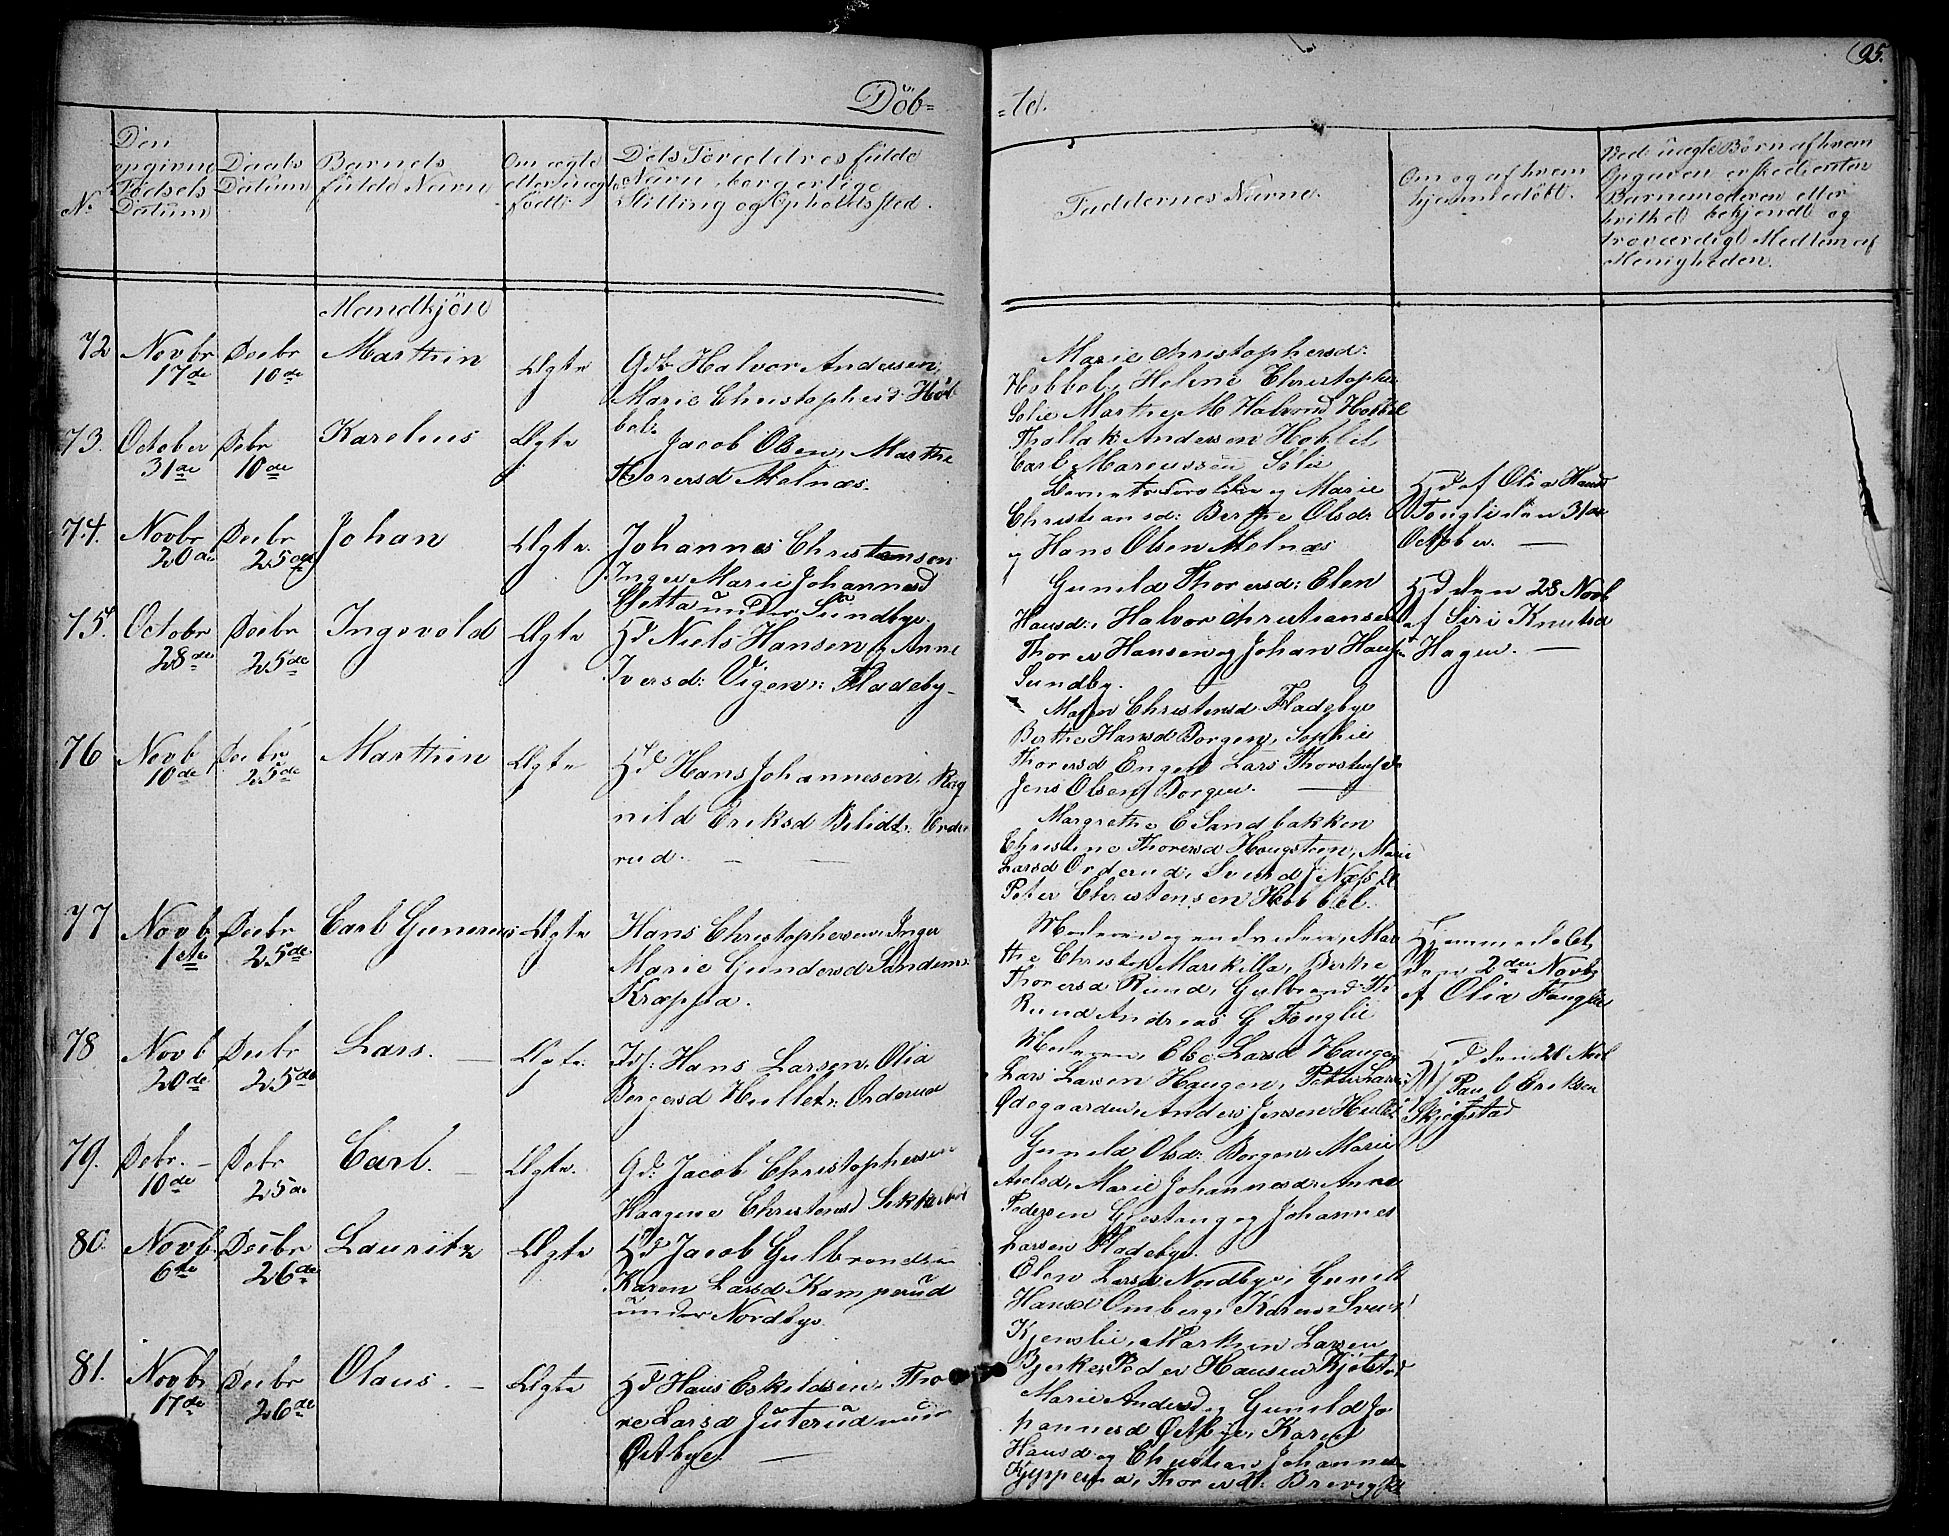 95.
Döb-
-te.
No
Den
opgivne
Födsels
Datum
Daabs
Datum
Barnets
fulde Navn
Om ægte
eller uægte
födt.
Dets Forældres fulde
Navn, borgerlige
Stilling og Opholdssted.
Faddernes Navne.
Om og af hvem
hjemmedöbt.
Ved uægte Børn af hvem
Opgaven er
Barnemoderen eller
hvilket bekjendt og
troværdigt Medlem af
Menigheden.
Mandkjön
72
Novbr
17de
Decbr
10de
Marthin
Ægte
Gdb Halvor Andersen,
Marie Christophersd Höb
bel.
Marie Christophersd:
Hobbel, Helene Christophe
Solie Marthe M Halvorsd Hobbel
Thollak Andersen Hobbel,
Carl Marcussen Solie
73.
October
31de
Debr
10de
Karelius
Ægte
Jacob Olsen, Marthe
Thorersd Melnæs.
Marie
Christiansd: Berthe Olsd:
og Hans Olsen Melnæs
Hjd af Olia Hansd
Fonglie den 31de
October. —
74.
Novbr
20de
Decbr
25de
Johan
Ægte.
Johannes Christensen
Inger Marie Johannesd
under Sundbye
Gunild Thorersd: Elen
Hansd:, Halvor Christiansen
Thorer Hansen og Johan Hans
Sundby.
Hjd den 28 Novb
af Siri Knutsd
Hagen. —
75.
Octobr
28de
Decbr
25de
Ingevold
Ægte
Hd Niels Hansen, Anne
Iversd: Vigen: Fladeby-
Maren Christensd Fladebye
Berthe Hansd Borgen, Sophie
Thorersd Engen Lars Thorstens
Jens Olsen Borgen.
76
Novb
10de
Decbr
25de
Marthin
Ægte
Hd Hans Johannesen, Rag
nild Eriksd Belidt: Orde
rud. — —
Margrethe E Sandbakken
Christine Thorersd Haugsteen, Marie
Larsd Orderud, Svend J Næss
Peter Christensen Hobbel.
77
Novb
1ste
Decbr
25de
Carl Gunerius
Ægte
Hans Christophersen, Inger
Marie Gundersd Sandem:
Krappta.
Moderen og endvidere, Mar
the Christop Marikilla, Berthe
Thorersd Rund, Gulbrand Th
Rund Andreas G Fonglie
Hjemmedøbt
den 2den Novb
af Olia Fonglie
78
Novb
20de
Decbr
25de
Lars. —
Ægte.
Hans Larsen, Olia
Bergersd Hullet: Orderud
Moderen, Else Larsd Haugen
Lars Larsen Haugen, Petter Lars
Ødegaarden, Anders Jensen Hullet
Hjd den 20 Novb
af Paul Eriksen
Skjegstad
79.
Debr. —
10de
Debr
25de
Carl. —
Ægte.
Gd: Jacob Christophersen
Haagene Christensd
Gunild Olsd: Borgen, Marie
Axelsd, Marie Johannesd: Anne
Pedersen Gjestang og Johannes
Larsen Fladebye
80.
Novb.
6te
Decbr
26de
Lauritz
Ægte
Hd Jacob Gulbrandsen
Karen Larsd Kamperud
under Nordbye.
Elen Larsd Nordbye, Gunild
Hansd Omberg, Karen Svend
Kjenslie, Marthin Larsen
Bjerke, Peder Hansen Kjølstad
81.
Novbr
17de
Decbr
26de
Olaus. —
Ægte
Hd Hans Eskildsen, Tho
re Larsd Juterud under
Østbye. —
Marie Andersd, Gunild Jo
hannesd Østbye, Karen
Hansd og Christian Johannes
Thorer H: Brevig